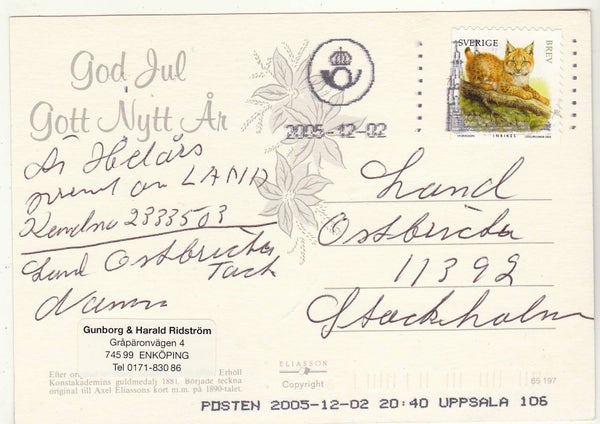 God Jul
Gott Nytt År
Är Helårs
prenumerant LAND
Kundno 2333503
Land Ostbricka
Tack
Namn
Gunborg & Harald Ridström
Gråpäronvägen 4
745 99 ENKÖPING
Tel 0171-830 86
Efter Erhöll
Konstakademins guldmedalj 1881. Började teckna
original till Axel Eliassons kort m.m. på 1890-talet.
2005-12-02
SVERIGE
BREV
INRIKES
Land
Ostbricka
11392
Stockholm
ELIASSON
Copyright
65 197
POSTEN 2005-12-02 20:40 UPPSALA 106